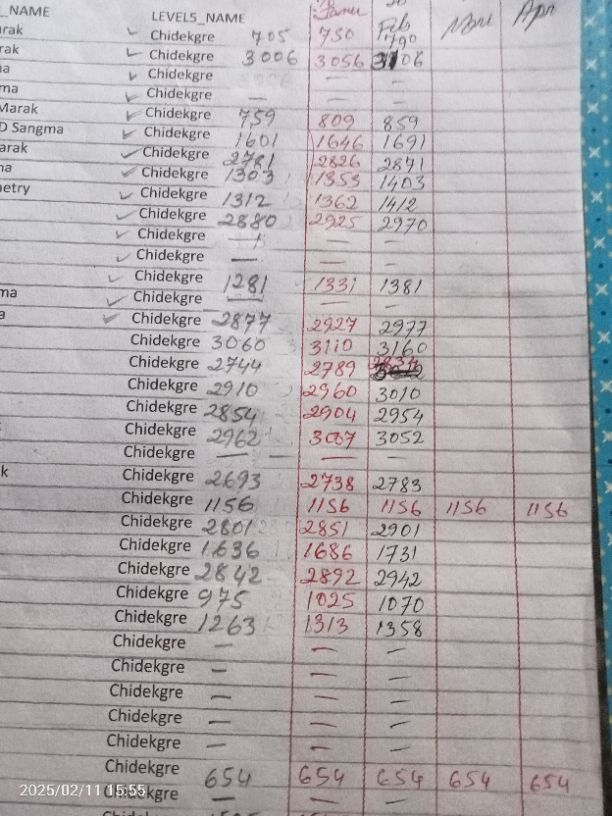 _NAME LEVEL5_NAME Janu Feb Mar Apr
arak ✓ Chidekgre 705 750 790
rak ✓ Chidekgre 3006 3056 3106
a ✓ Chidekgre — —
ma ✓ Chidekgre — — —
Marak ✓ Chidekgre 759 809 859
D Sangma ✓ Chidekgre 1601 1646 1691
arak ✓ Chidekgre 2781 2826 2871
na ✓ Chidekgre 1303 1353 1403
etry ✓ Chidekgre 1312 1362 1412
✓ Chidekgre 2880 2925 2970
✓ Chidekgre — — —
✓ Chidekgre — — —
✓ Chidekgre 1281 1331 1381
ma ✓ Chidekgre — — —
a ✓ Chidekgre 2877 2927 2977
Chidekgre 3060 3110 3160
Chidekgre 2744 2789 2834
Chidekgre 2910 2960 3010
Chidekgre 2854 2904 2954
Chidekgre 2962 3052
Chidekgre — — —
k Chidekgre 2693 2738 2783
Chidekgre 1156 1156 1156 1156 1156
Chidekgre 2801 2851 2901
Chidekgre 1636 1686 1731
Chidekgre 2842 2892 2942
Chidekgre 975 1025 1070
Chidekgre 1263 1313 1358
Chidekgre — — —
Chidekgre — — —
Chidekgre — — —
Chidekgre — — —
Chidekgre — — —
Chidekgre 654 654 654 654 654
Chidekgre — — —
2025/02/11 15:55